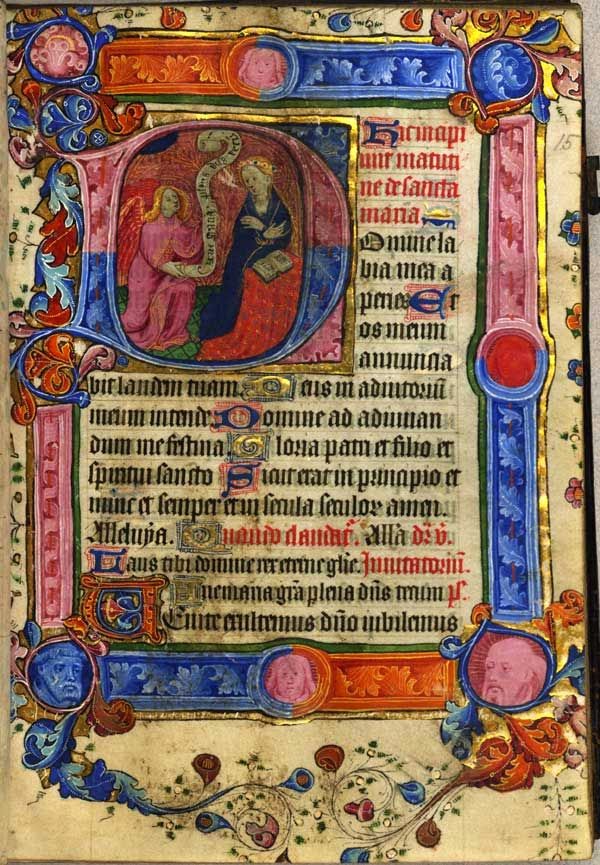 Hic incipi
unt matuti
ne de sancta
maria
Domine la
bia mea a
peries Et
os meum
annuncia
bit laudem tuam Deus in adiutoriū
meum intende Domine ad adiuuan
dum me festina Gloria patri et filio et
spiritui sancto Sicut erat in principio et
nunc et semper et in secula seculor̄ amen.
Alleluya. Quando claudit̄. Alla dr̄ v̄.
Laus tibi domine rex eterne glīe. Inuitatoriū.
Aue maria grā plena dn̄s tecum p̄s.
Uenite exultemus dn̄o iubilemus
15